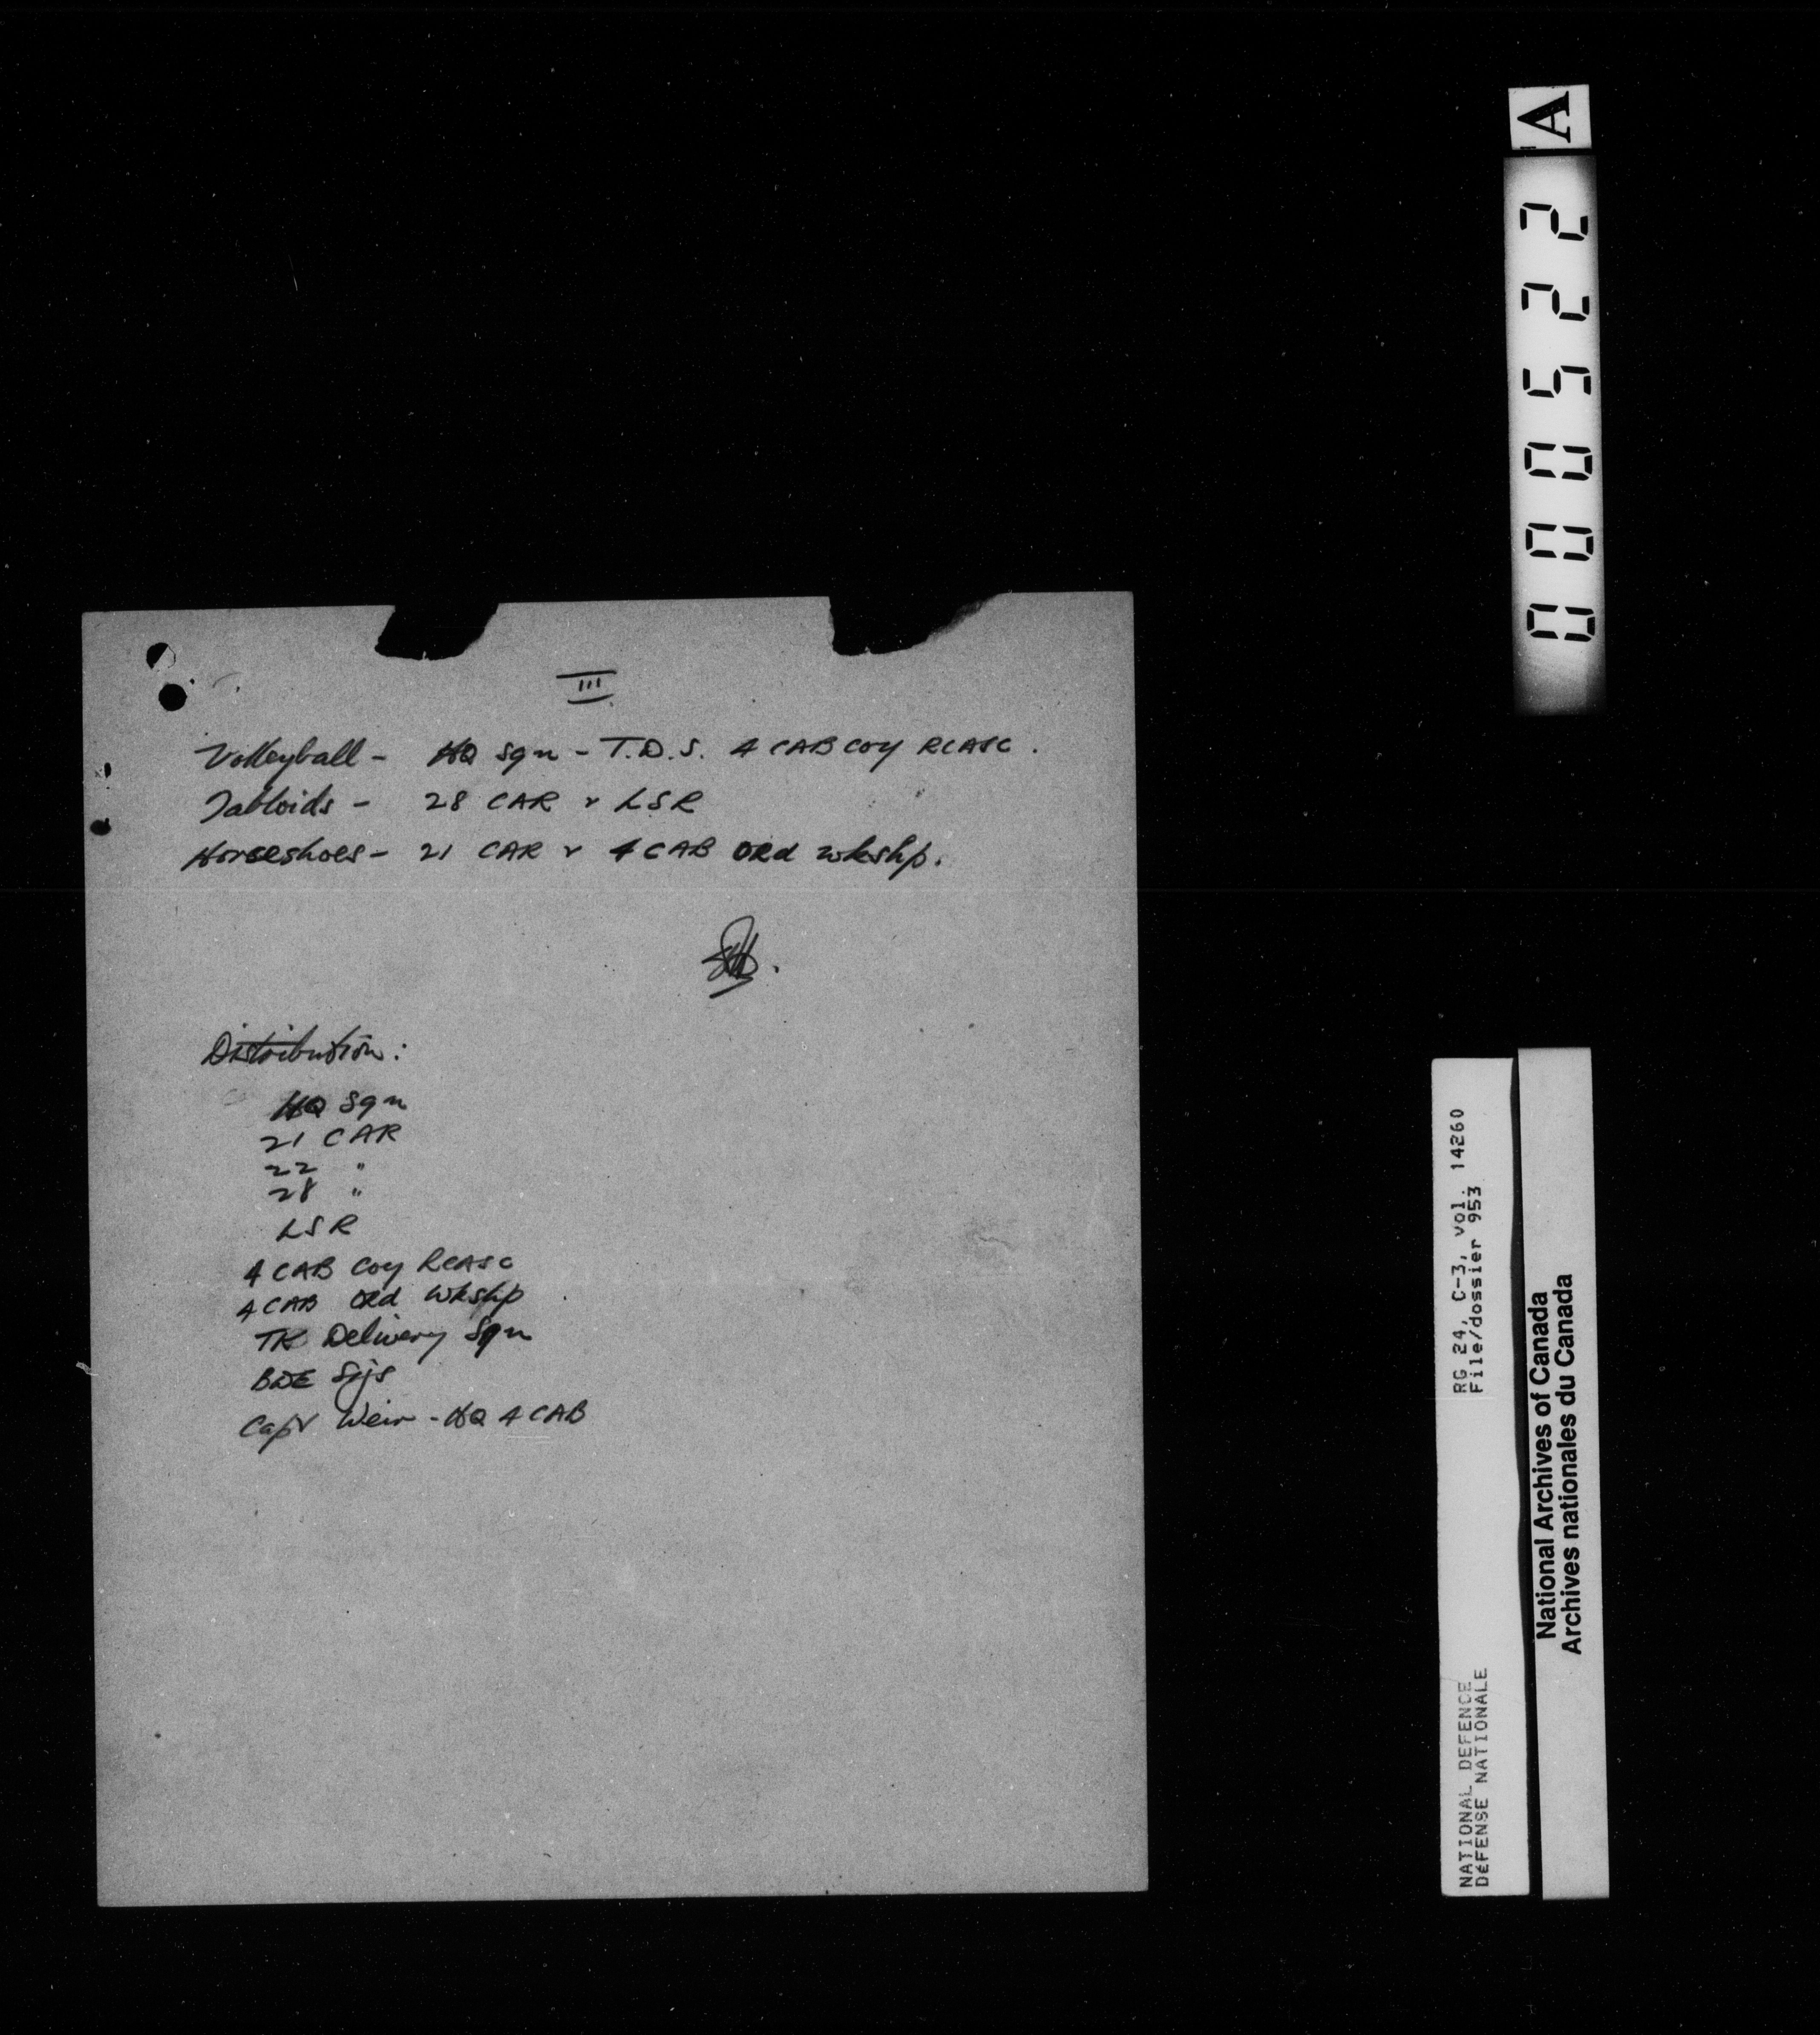 III
Volleyball - HQ Sqn - T.D.S. 4 CAB Coy RCASC.
Tabloids - 28 CAR v LSR
Horseshoes - 21 CAR v 4 CAB ORd wkshp.
Distribution:
HQ Sqn
21 CAR
22 "
28 "
LSR
4 CAB Coy RCASC
4 CAB ORd Wkshp
TK Delivery Sqn
BDE Sigs
Capt Weir - HQ 4 CAB
A
000522
RG 24, C-3, vol. 14260
File/dossier 953
NATIONAL DEFENCE
DÉFENSE NATIONALE
National Archives of Canada
Archives nationales du Canada